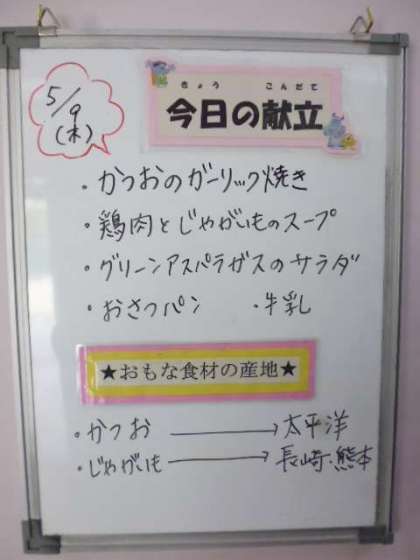 5/9
(木)
きょう こんだて
今日の献立
・かつおのガーリック焼き
・鶏肉とじゃがいものスープ
・グリーンアスパラガスのサラダ
・おさつパン ・牛乳
★おもな食材の産地★
・かつお → 太平洋
・じゃがいも → 長崎・熊本